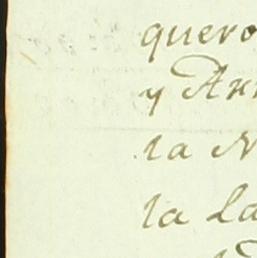 quero
y Ar
la N
la La